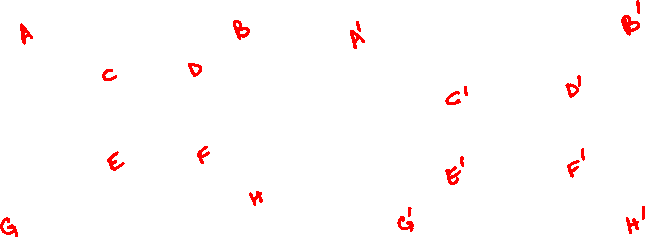 A B A' B'
C D C' D'
E F E' F'
G H G' H'